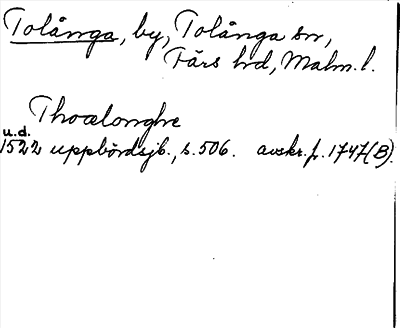 Tolånga, by, Tolånga sn,
Färs hd, Malm. l.
Thoælonghe
u.d.
1522 uppbördsjb., s. 506. avskr. fr. 1747(B).